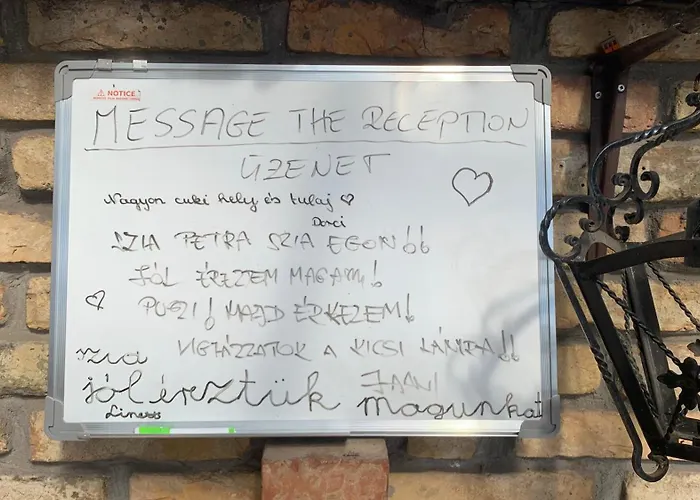 NOTICE
MESSAGE THE RECEPTION
ÜZENET
Nagyon cuki hely és tulaj
Dorci
SZIA PETRA SZIA EGON!!
JÓL ÉREZEM MAGAM!
PUSZI! MAJD ÉRKEZEM!
VIGYÁZZATOK A KICSI
szia
jól éreztük magunkat